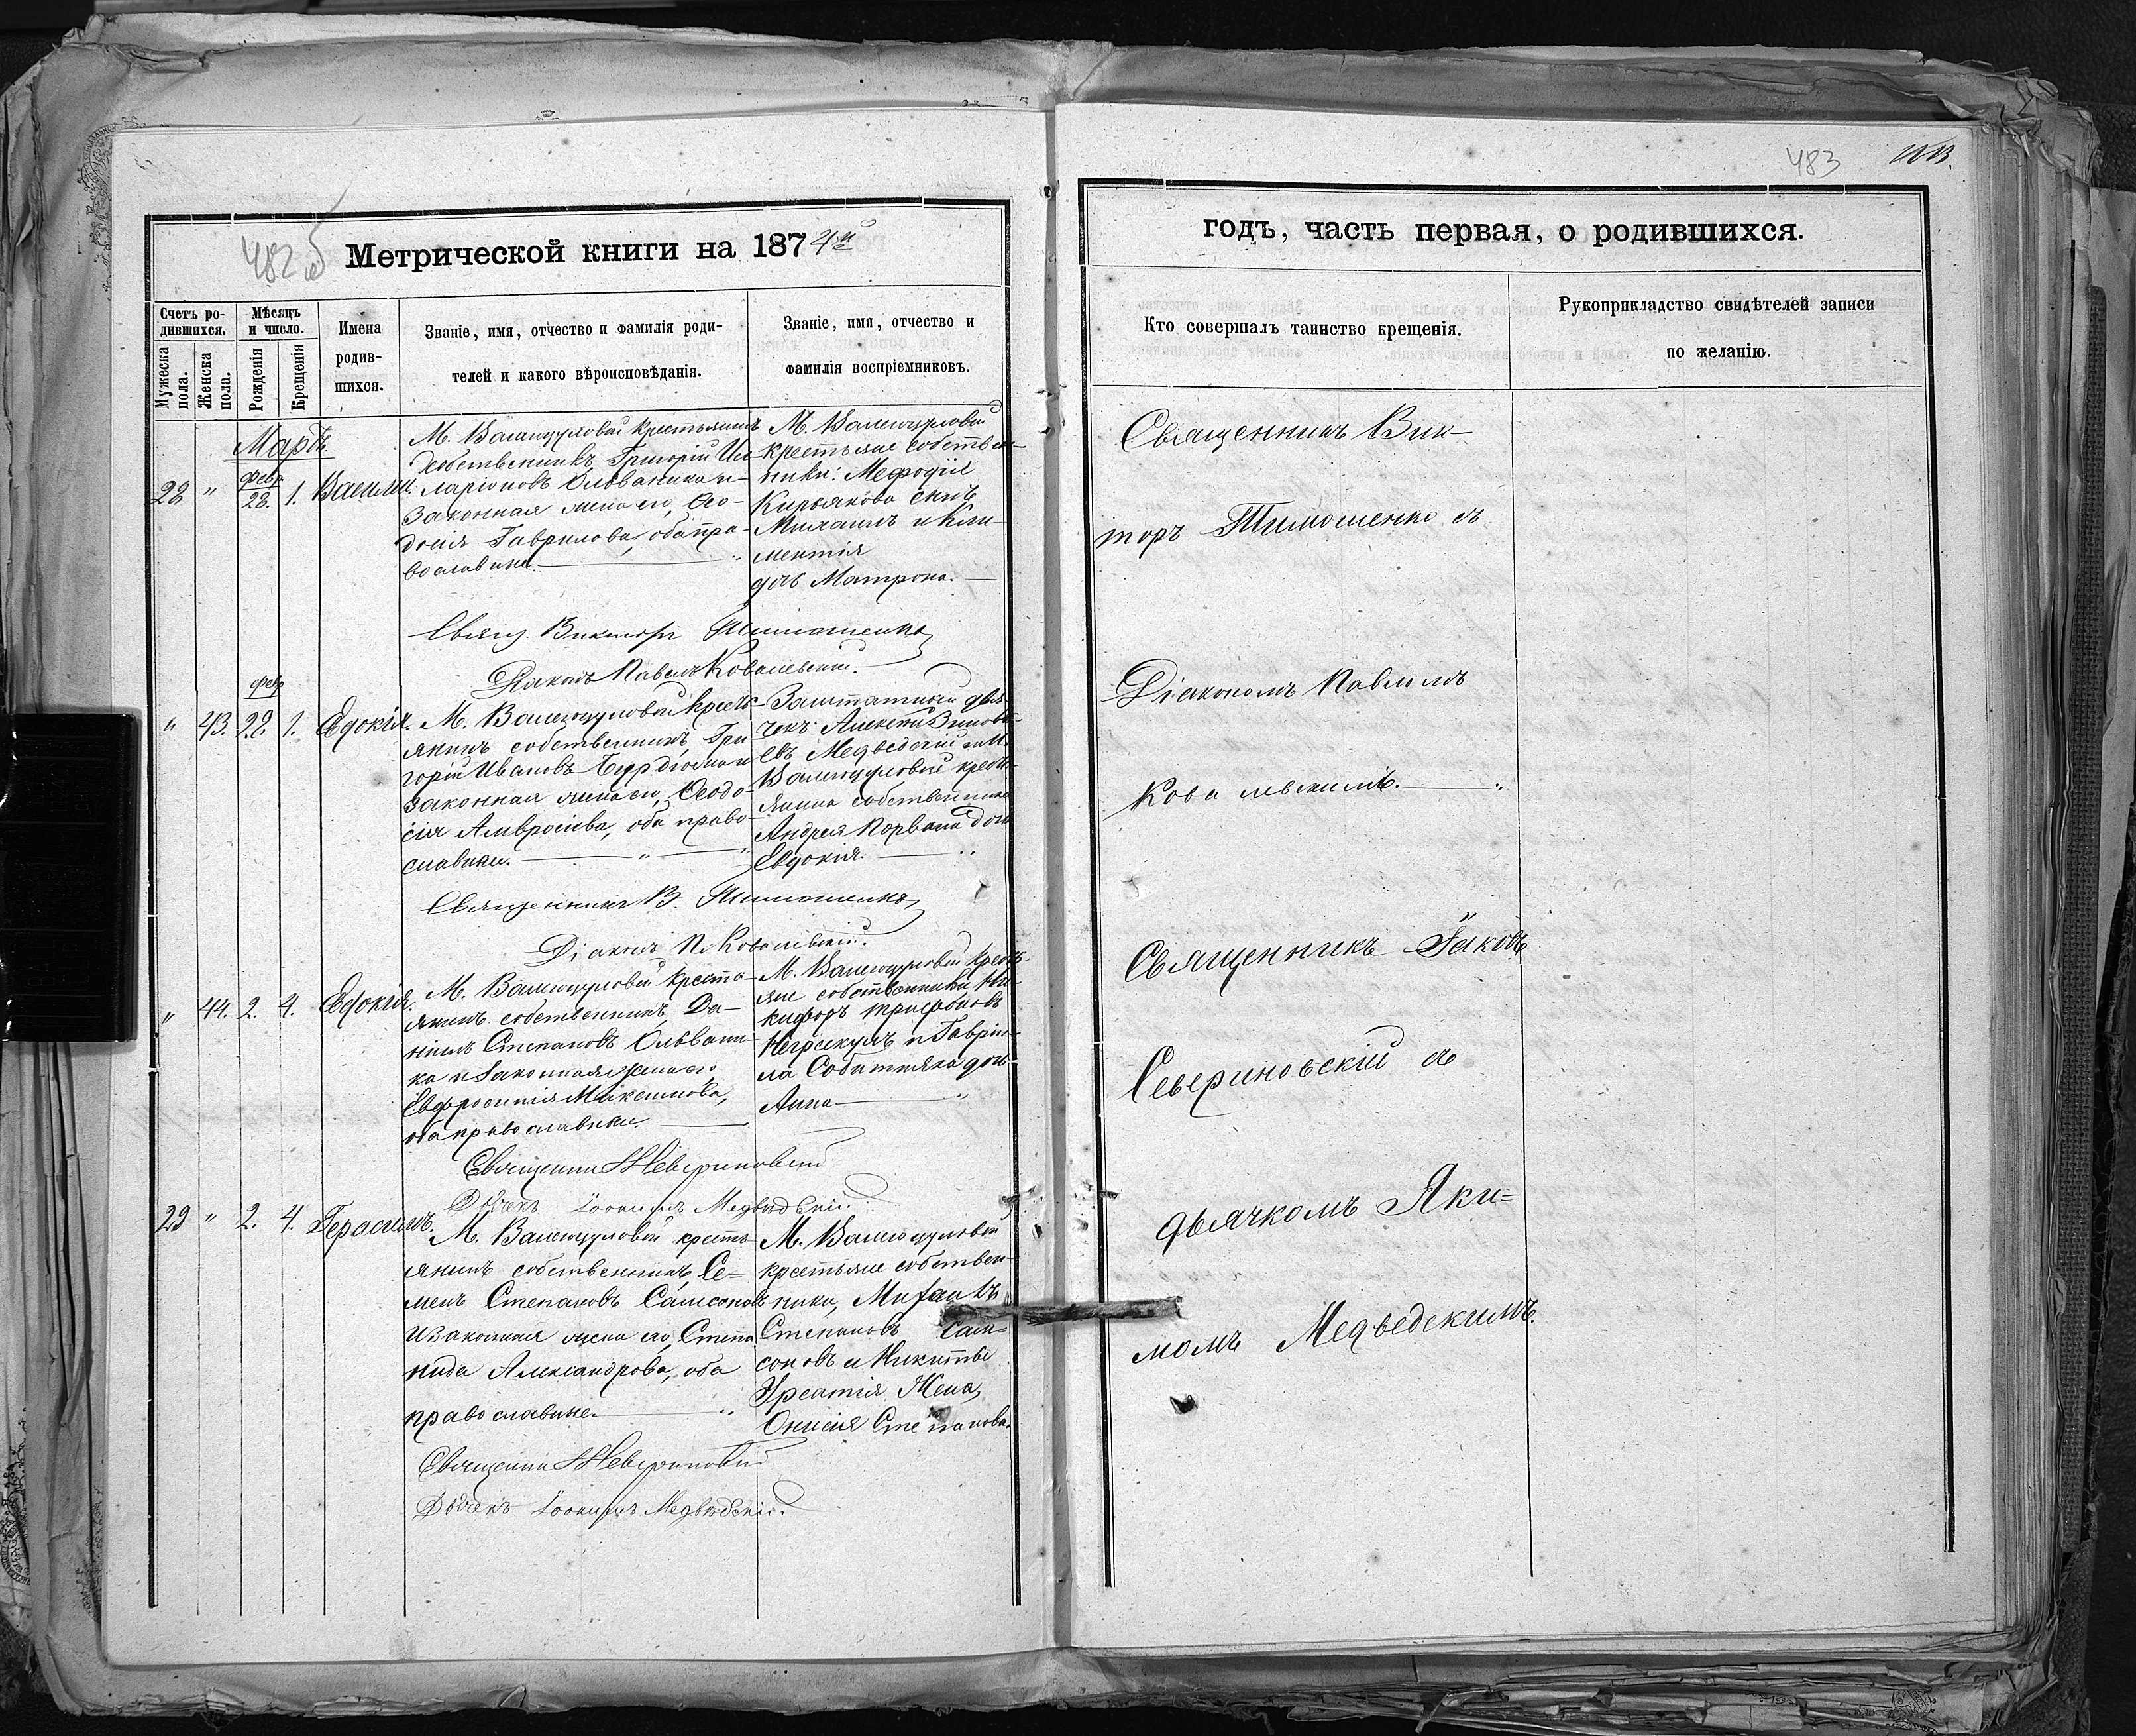 482 об
Метрической книги на 1874й
Счетъ ро-
дившихся.
Мѣсяцъ
и число.
Мужеска
пола.
Женска
пола.
Рожденія
Крещенія
Имена
родив-
шихся.
Званіе, имя, отчество и фамилія роди-
телей и какого вѣроисповѣданія.
Званіе, имя, отчество и
фамилія воспріемниковъ.
Мартъ
28 " Февр 28. 1. Василій.
М.
собственникъ, Григорій Ил-
ларіоновъ и
законная жена его, Ѳео-
досія Гаврилова, оба пра-
вославные.
М.
крестьяне собствен-
ники: Мефодія
Кирьякова сынъ
Михаилъ и Кли-
ментія
дочь Матрона.
Свящ. Викторъ Тимошенко
Діаконъ Павелъ Ковалевскій.
" 43. Февр 28 1. Евдокія.
М. крестья-
янинъ собственникъ, Гри
горій Ивановъ и
законная жена его, Ѳеодо-
сія Амвросіева, оба право-
славные.
Заштатный дья
чекъ Алексій Зиновь-
евъ Медведскій и М.
кресть-
янина собственника
Андрея дочь
Евдокія.
Священникъ В. Тимошенко
Діаконъ П. Ковалевскій.
" 44. 2. 4. Евдокія.
М. кресть-
янинъ собственникъ, Да-
ніилъ Степановъ
ка и законная жена его
Евфросинія Максимова,
оба православные.
М. кресть-
яне собственники, Ни-
кифоръ
и Гавріи-
ла дочь
Анна
Священникъ Севериновскій
Дьячекъ Іоакимъ Медвѣдскій.
29 " 2. 4. Герасимъ.
М. кресть-
янинъ собственникъ, Се-
менъ Степановъ Самсоновъ
и законная жена его, Степа
нида Александрова, оба
православные.
М.
крестьяне собствен-
ники, Михаилъ
Степановъ Сам-
соновъ и Никиты
жена,
Онисія Степанова.
Священникъ Севериновскій
Дьячекъ Іоакимъ Медвѣдскій.
483
годъ, часть первая, о родившихся.
Кто совершалъ таинство крещенія.
Рукоприкладство свидѣтелей записи
по желанію.
Священникъ Вик-
торъ Тимошенко съ
Діакономъ Павломъ
Ковалевскимъ.
Священникъ Іаковъ
Севериновскій съ
дьячкомъ Яки=
момъ Медведскимъ.